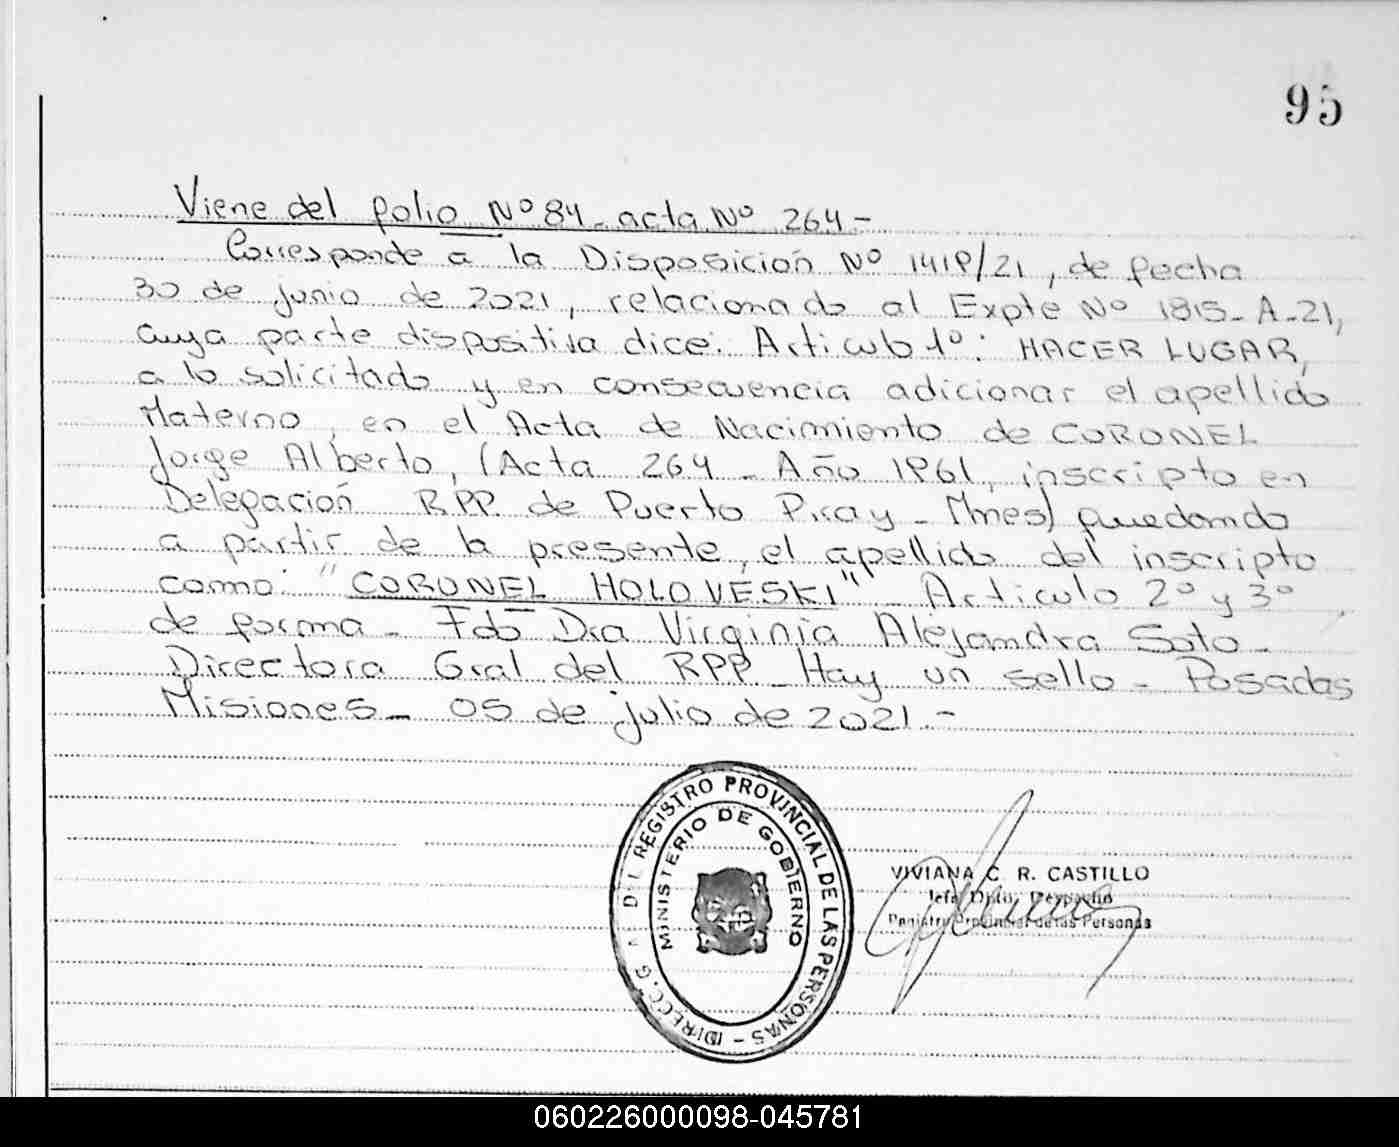 95
Viene del folio Nº 84 - acta Nº 264 -
Corresponde a la Disposición Nº 1419/21, de fecha
30 de junio de 2021, relacionado al Expte Nº 1815-A-21,
cuya parte dispositiva dice: Articulo 1º: HACER LUGAR,
a lo solicitado y en consecuencia adicionar el apellido
Materno, en el Acta de Nacimiento de CORONEL
Jorge Alberto, (Acta 264 - Año 1961, inscripto en
Delegación RPP. de Puerto Piray - Mnes) quedando
a partir de la presente, el apellido del inscripto
como: "CORONEL HOLOVESKI" Articulo 2º y 3º
de forma - Fdo Dra Virginia Alejandra Soto -
Directora Gral del RPP - Hay un sello - Posadas
Misiones - 05 de julio de 2021.-
DIRECC. G DEL REGISTRO PROVINCIAL DE LAS PERSONAS -
MINISTERIO DE GOBIERNO
VIVIANA C. R. CASTILLO
Jefa Dpto. Despacho
Registro Provincial de las Personas
060226000098-045781